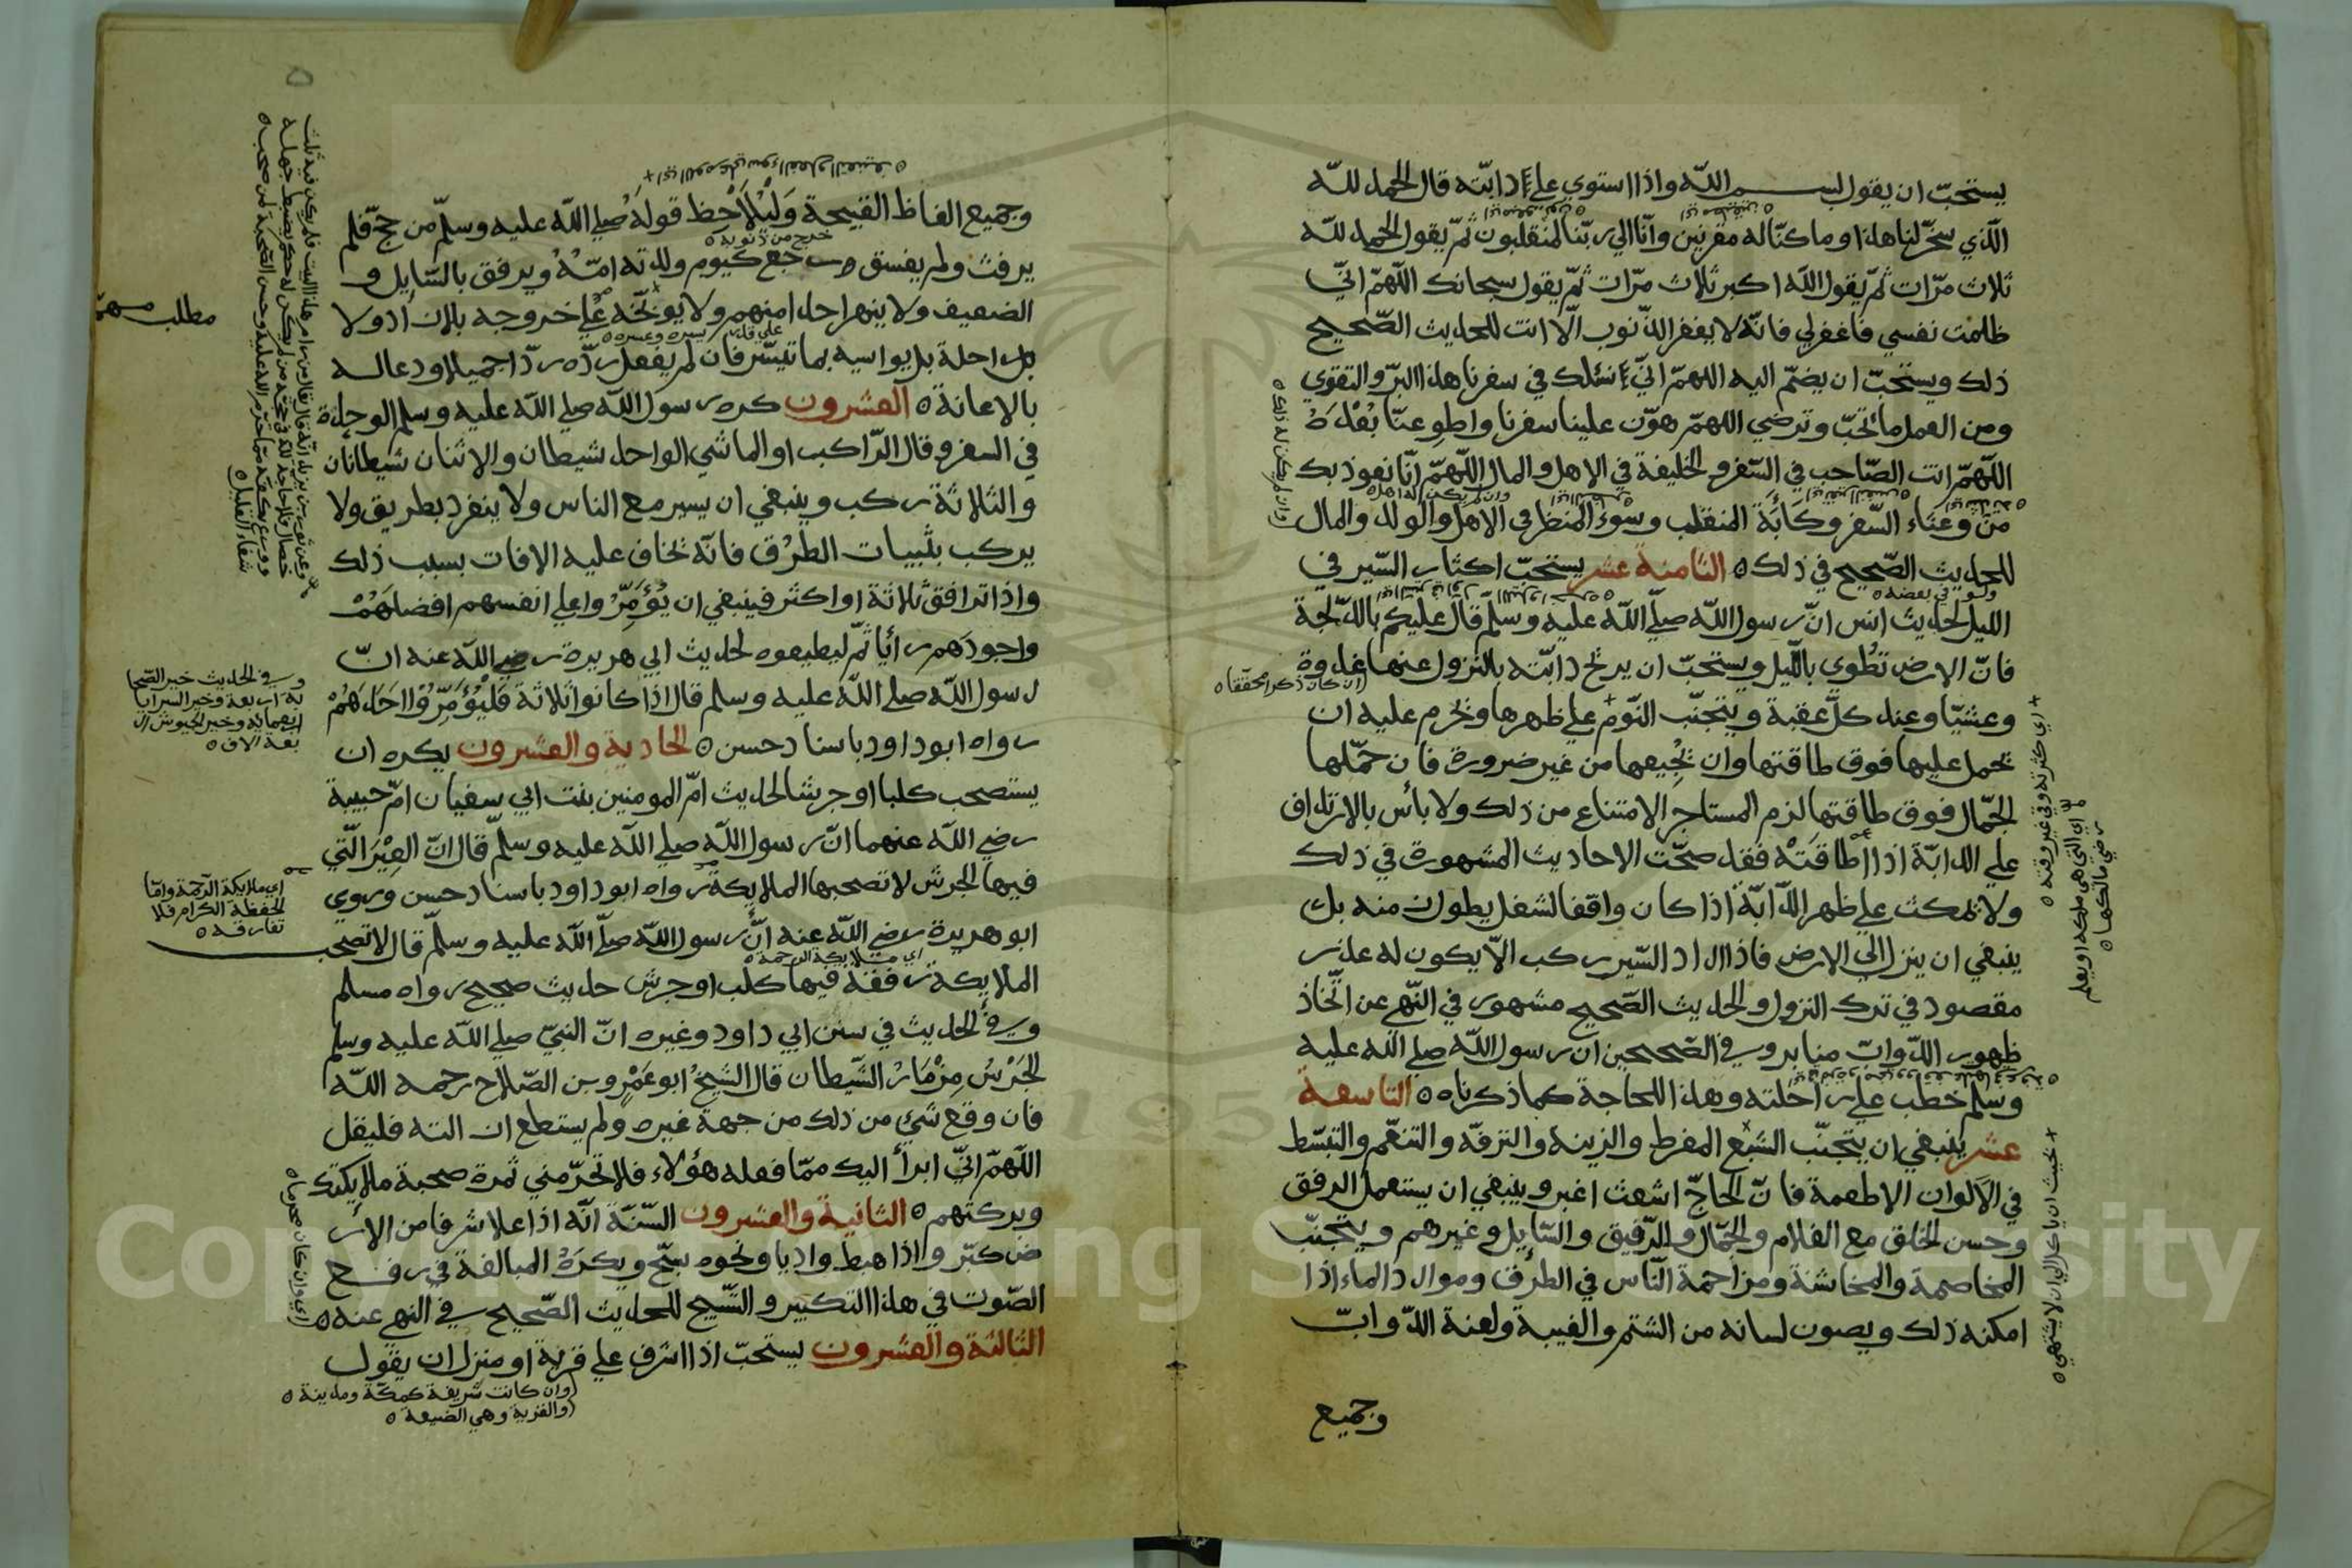 يستحبّ ان يقول بسم اللّه واذا استوي علي دابّته قال الحمد للّه
الّذي سخّر لنا هذا وما كنّا له مقرنين وانّا الي ربّنا لمنقلبون ثمّ يقول الحمد للّه
ثلاث مرّات ثمّ يقول اللّه اكبر ثلاث مرّات ثمّ يقول سبحانك اللّهمّ انّي
ظلمت نفسي فاغفر لي فانّه لا يغفر الذّنوب الّا انت للحديث الصّحيح
ذلك ويستحبّ ان يضمّ اليه اللهمّ انّي نسئلك في سفرنا هذا البرّ والتقوي
ومن العمل ما تحبّ وترضي اللهمّ هوّن علينا سفرنا واطو عنّا بعده
اللّهمّ انت الصّاحب في السّفر والخليفة في الاهل والمال اللّهمّ انّا نعوذ بك
من وعثاء السّفر وكآبة المنقلب وسوء المنظر في الاهل والولد والمال
للحديث الصّحيح في ذلك ٥ الثامنة عشر يستحبّ اكثار السّير في
ولو في بعضه ٥
الليل لحديث انس انّ رسول اللّه صلّي اللّه عليه وسلّم قال عليكم بالدّلجة
فانّ الارض تطوي باللّيل ويستحبّ ان يريح دابّته بالنزول عنها غدوة
ان كان ذكرا محققا ٥
وعشيّا وعند كلّ عقبة ويتجنّب النّوم علي ظهرها ويحرم عليه ان
يحمل عليها فوق طاقتها وان يجيعها من غير ضرورة فان حمّلها
الجمّال فوق طاقتها لزم المستاجر الامتناع من ذلك ولا بأس بالارتداف
علي الدابّة اذا اطاقته فقد صحّت الاحاديث المشهورة في ذلك
ولا يمكث علي ظهر الدّابّة اذا كان واقفا لشغل يطول منه بل
ينبغي ان ينزل الي الارض فاذا اراد السّير ركب الّا يكون له عذر
مقصود في ترك النزول والحديث الصّحيح مشهور في النّهي عن اتّخاذ
ظهور الدّوابّ منابر وفي الصّحيحين ان رسول اللّه صلي اللّه عليه
وسلم خطب علي راحلته وهذا للحاجة كما ذكرناه ٥ التاسعة
عشر ينبغي ان يتجنّب الشبع المفرط والزينة والترفّه والتنعّم والتبسّط
في الالوان الاطعمة فانّ الحاجّ اشعث اغبر وينبغي ان يستعمل الرفق
وحسن الخلق مع الغلام والجمّال والرّفيق والسّايل وغيرهم ويتجنّب
المخاصمة والمخاشنة ومزاحمة النّاس في الطرق وموارد الماء اذا
امكنه ذلك ويصون لسانه من الشتم والغيبة ولعنة الدّوابّ
وجميع
+ اي كثرته وفي غير وقته ٥
اي التي هي ملكه او يعلم
رضي مالكها ٥
+ بحيث ان ياكل الي ان لا يشتهي ٥
وجميع الفاظ القبيحة وليلاحظ قوله صلي اللّه عليه وسلّم من حجّ فلم
خرج من ذنوبه ٥
يرفث ولم يفسق رجع كيوم ولدته امّه ويرفق بالسّايل و
الضعيف ولا ينهر احدا منهم ولا يوبّخه علي خروجه بلا زاد ولا
بل احلة بل يواسيه بما تيسّر فان لم يفعل ردّه ردّا جميلا ودعا له
بالاعانة ٥ العشرون كره رسول اللّه صلي اللّه عليه وسلم الوحدة
في السفر وقال الرّاكب او الماشي الواحد شيطان والاثنان شيطانان
والثلاثة ركب وينبغي ان يسير مع الناس ولا ينفرد بطريق ولا
يركب بثبيات الطرق فانّه يخاف عليه الافات بسبب ذلك
واذا ترافق ثلاثة او اكثر فينبغي ان يؤمّروا علي انفسهم افضلهم
واجودهم رأيا ثمّ ليطيعوه لحديث ابي هريرة رضي اللّه عنه انّ
رسول اللّه صلي اللّه عليه وسلم قال اذا كانوا ثلاثة فليؤمّروا احدهم
رواه ابو داود باسناد حسن ٥ الحادية والعشرون يكره ان
يستصحب كلبا او جرسا لحديث امّ المومنين بنت ابي سفيان امّ حبيبة
رضي اللّه عنهما انّ رسول اللّه صلي اللّه عليه وسلّم قال انّ العير الّتي
فيها الجرس لا تصحبها الملايكة رواه ابو داود باسناد حسن وروي
ابو هريرة رضي اللّه عنه انّ رسول اللّه صلّي اللّه عليه وسلّم قال لا تصحب
اي ملايكة الرحمة ٥
الملايكة رفقة فيها كلب او جرس حديث صحيح رواه مسلم
وفي الحديث في سنن ابي داود وغيره انّ النبيّ صلي اللّه عليه وسلم
الجرس مزمار الشّيطان قال الشيخ ابو عمرو بن الصّلاح رحمه اللّه
فان وقع شيئ من ذلك من جهة غيره ولم يستطع ازالته فليقل
اللّهمّ انّي ابرأ اليك ممّا فعله هؤلاء فلا تحرّمني ثمرة صحبة ملايكتك
وبركتهم ٥ الثانية والعشرون السّنّة انّه اذا علا شرفا من الار
ض كبّر واذا هبط واديا ونحوه سبّح ويكره المبالغة في رفع
الصّوت في هذا التكبير والتّسبيح للحديث الصّحيح في النهي عنه ٥
الثالثة والعشرون يستحبّ اذا اشرف علي قرية او منزل ان يقول
وان كانت شريفة كمكّة ومدينة ٥
والقرية وهي الضيعة ٥
مطلب مهمّ
وفي الحديث خير الصّحا
بة اربعة وخير السرايا
اربعماية وخير الجيوش ار
بعة الاف ٥
اي ملايكة الرّحمة وامّا
الحفظة الكرام فلا
تفارقه ٥
اي وان كان محرما ٥
شفاء الغليل ٥